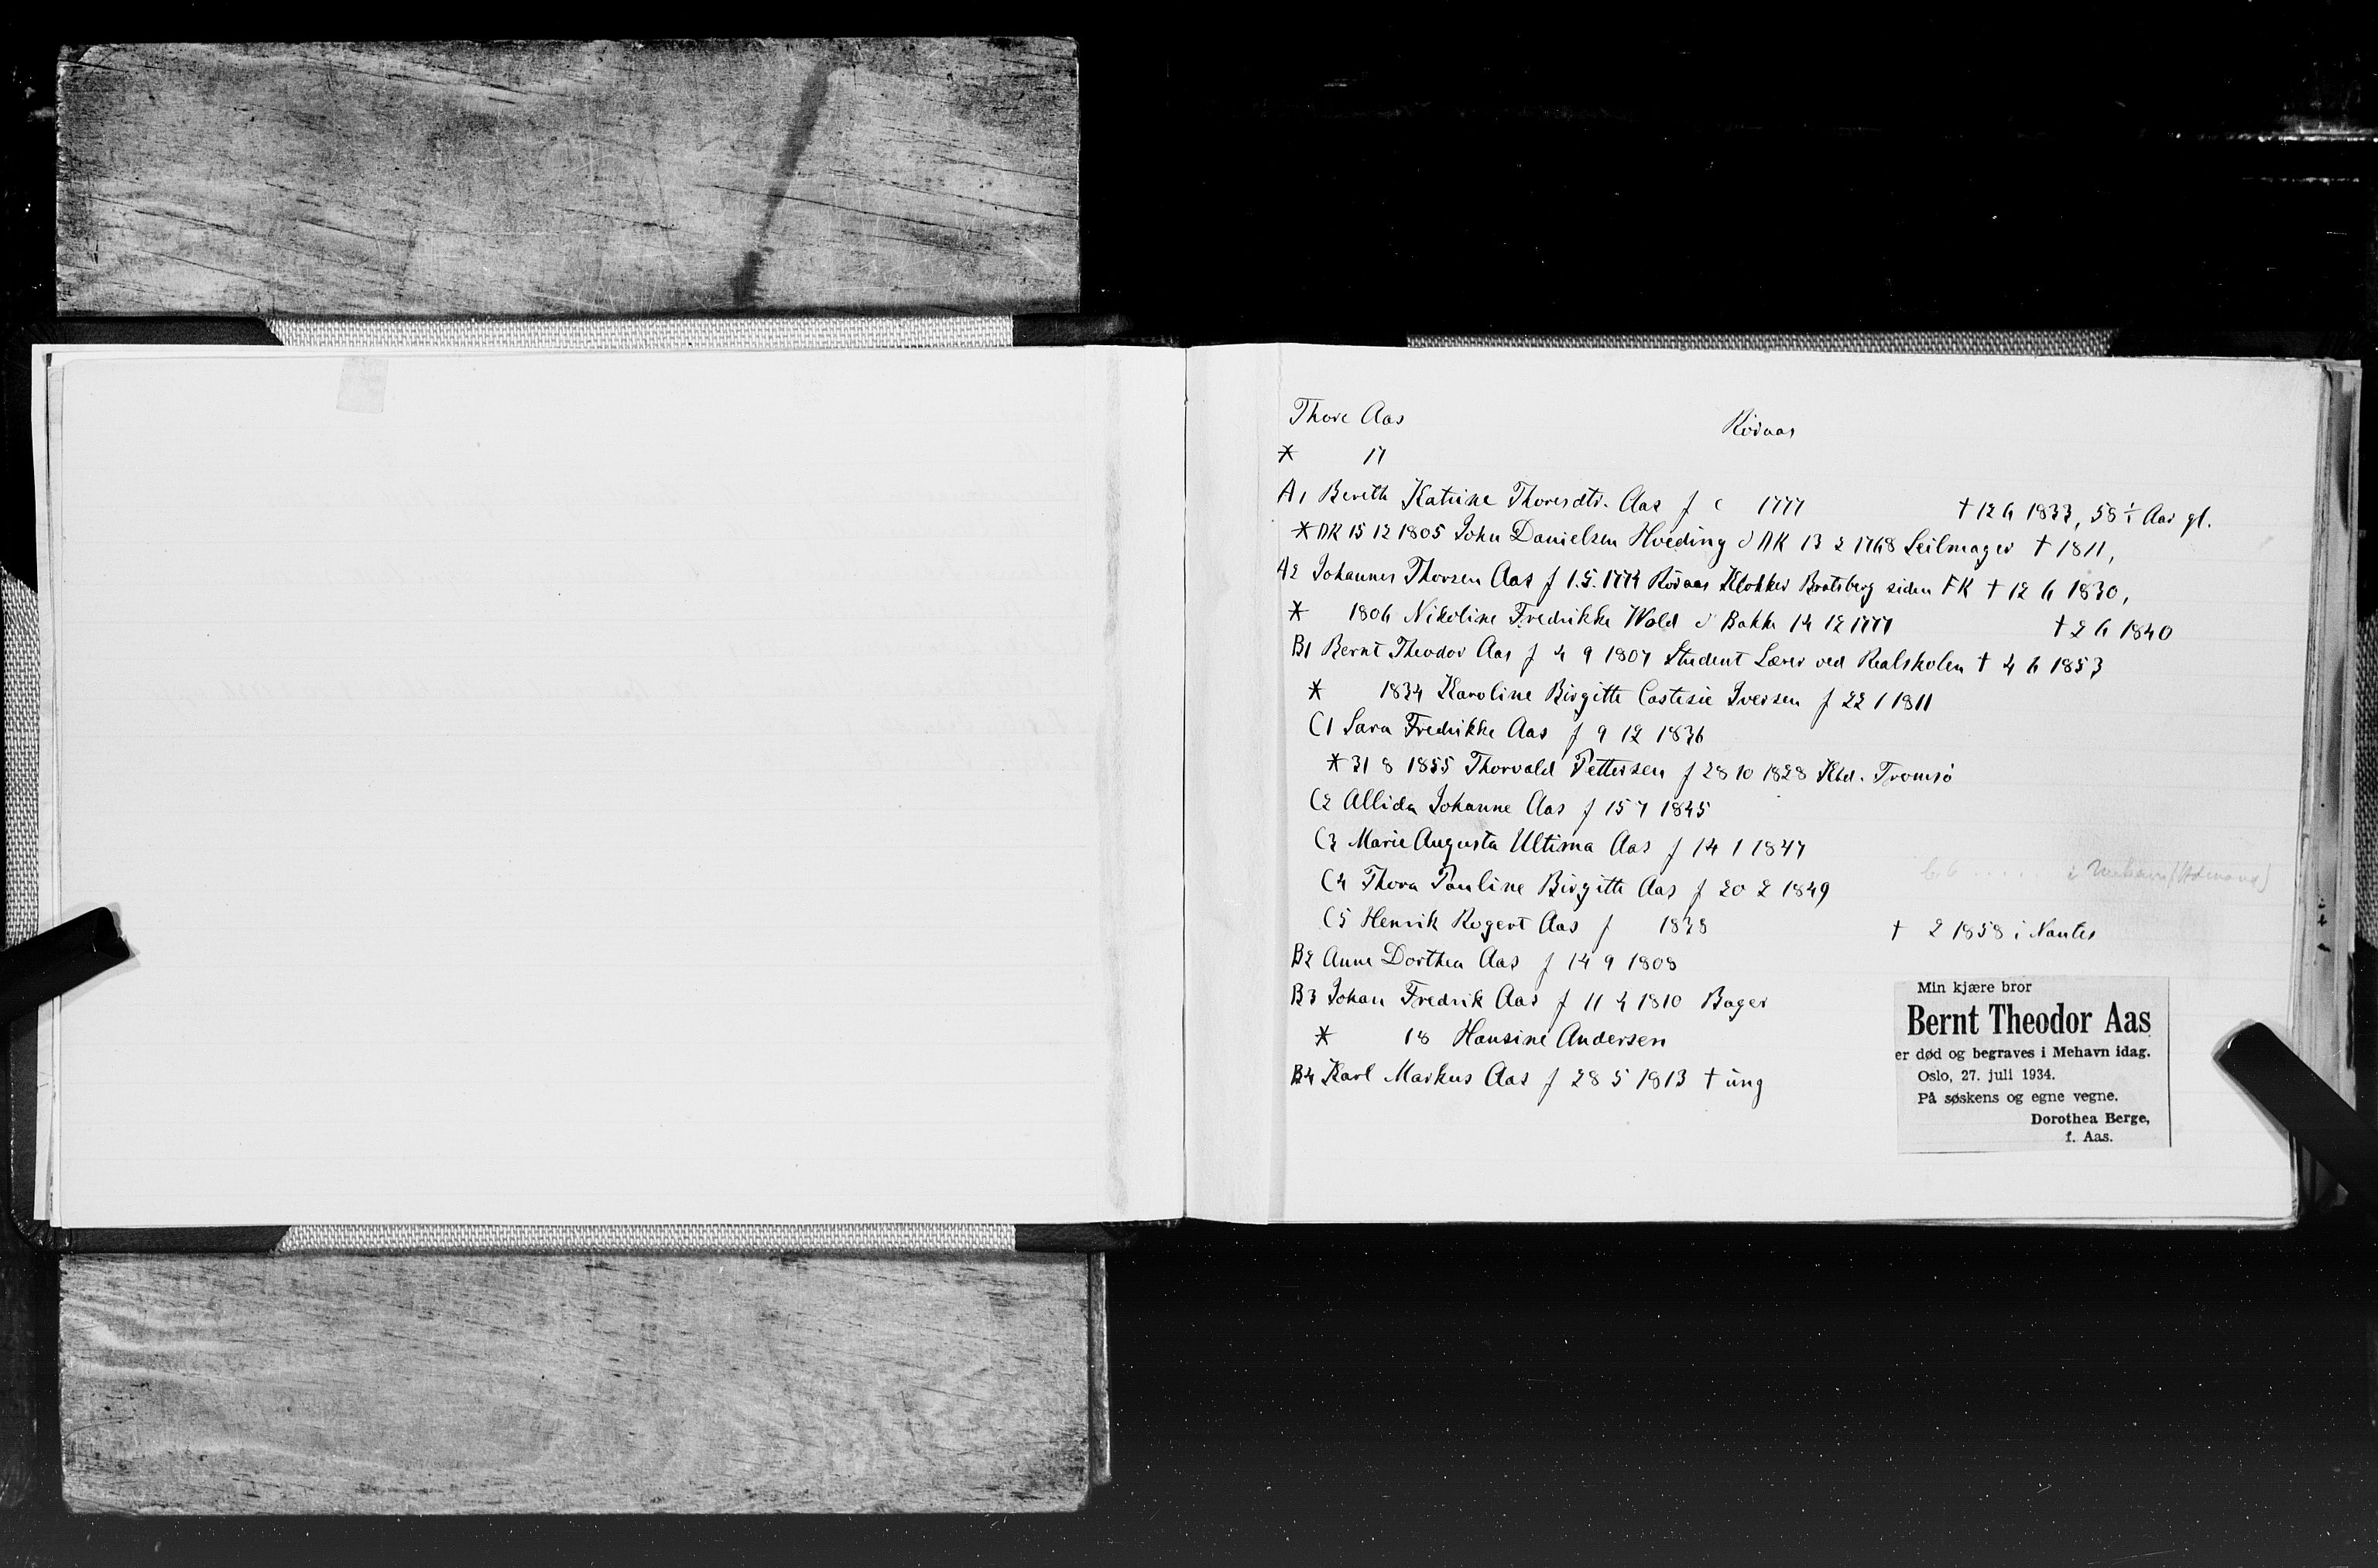 Thore Aas
Rödaas
* 17
A1 Bereth Katrine Thoresdtr. Aas f c 1777 † 12 6 1833, 58 ½ Aar gl.
* DK 15 12 1805 John Danielsen Hveding d DK 13 2 1768 Seilmager † 1811,
A2 Johannes Thorsen Aas f 1.5.1774 Rödaas Klokker Bratsberg siden FK † 12 6 1830,
* 1806 Nikoline Fredrikke Wold d Bakke 14 12 1777 † 2 6 1840
B1 Bernt Theodor Aas f 4 9 1807 Student Lærer ved Realskolen † 4 6 1853
* 1834 Karoline Birgitte Castesie Iversen f 22 1 1811
C1 Sara Fredrikke Aas f 9 12 1836
* 31 8 1855 Thorvald Pettersen f 28 10 1828 Kbd. Tromsö
C2 Allida Johanne Aas f 15 7 1845
C3 Marie Augusta Ultima Aas f 14 1 1847
C4 Thora Pauline Birgitte Aas f 20 2 1849
C5 Henrik Rogert Aas f 1838 † 2 1858 i Nantes
B2 Anne Dorthea Aas f 14 9 1808
B3 Johan Fredrik Aas f 11 4 1810 Bager
* 18 Hansine Andersen
B4 Karl Markus Aas f 28 5 1813 † ung
Min kjære bror
Bernt Theodor Aas
er død og begraves i Mehavn idag.
Oslo, 27. juli 1934.
På søskens og egne vegne.
Dorothea Berge,
f. Aas.